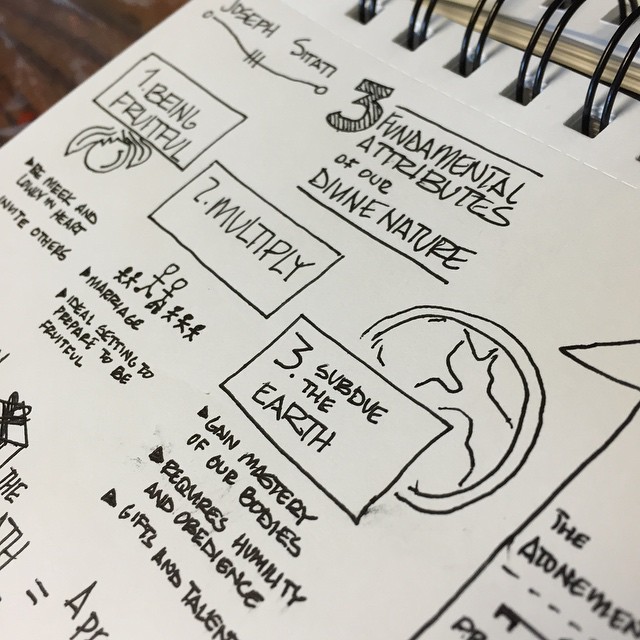 JOSEPH SITATI
3 FUNDAMENTAL
ATTRIBUTES
OF OUR
DIVINE NATURE
1. BEING
FRUITFUL
BE MEEK AND
LOWLY IN HEART
INVITE OTHERS
2. MULTIPLY
MARRIAGE
IDEAL SETTING TO
PREPARE TO BE
FRUITFUL
3. SUBDUE
THE
EARTH
GAIN MASTERY
OF OUR BODIES
REQUIRES HUMILITY
AND OBEDIENCE
GIFTS AND TALENT
THE
= APP
THE
ATONEMEN